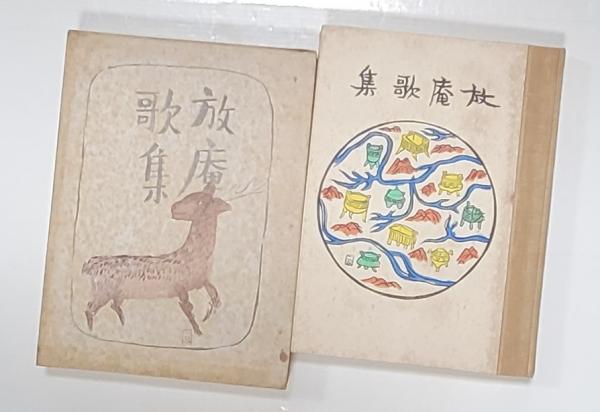 放庵
歌集
放庵歌集